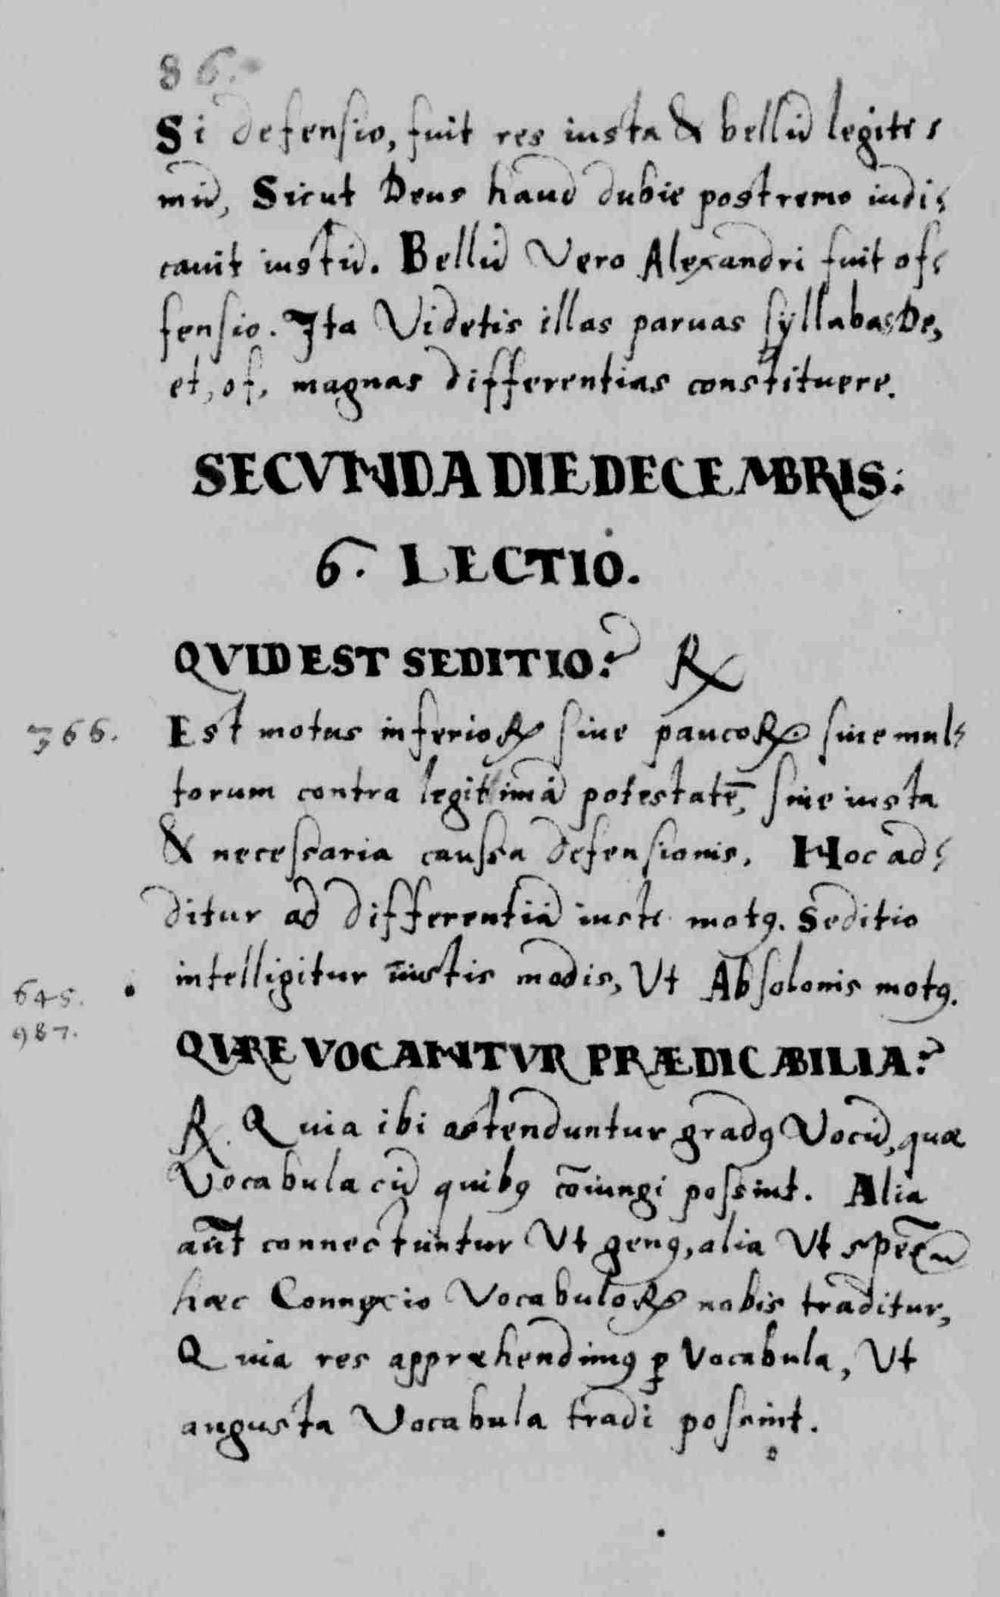 86.
Si defensio, fuit res iusta & bellū legiti⸗
mū, Sicut Deus haud dubie postremo iudi⸗
cauit iustū. Bellū Vero Alexandri fuit of⸗
fensio. Ita Videtis illas paruas syllabas De,
et, of, magnas differentias constituere.
SECVNDA DIE DECEMBRIS:
6. LECTIO.
QVID EST SEDITIO? ℞
366. Est motus inferioꝝ siue paucoꝝ siue mul⸗
torum contra legittimā potestatē, sine iusta
& necessaria caussa defensionis. Hoc ad⸗
ditur ad differentiā iusti motꝰ. Seditio
645. intelligitur iustis modis, Vt Absolonis motꝰ.
987.
QVARE VOCANTVR PRÆDICABILIA?
℞. Quia ibi ostenduntur gradꝰ Vocū, quæ
Vocabula cū quibꝰ cōiungi possint. Alia
aūt connectuntur Vt genꝰ, alia Vt
hæc Connexio Vocabuloꝝ nobis traditur,
Quia res appræhendimꝰ ꝑ Vocabula, Vt
angusta Vocabula tradi possint.